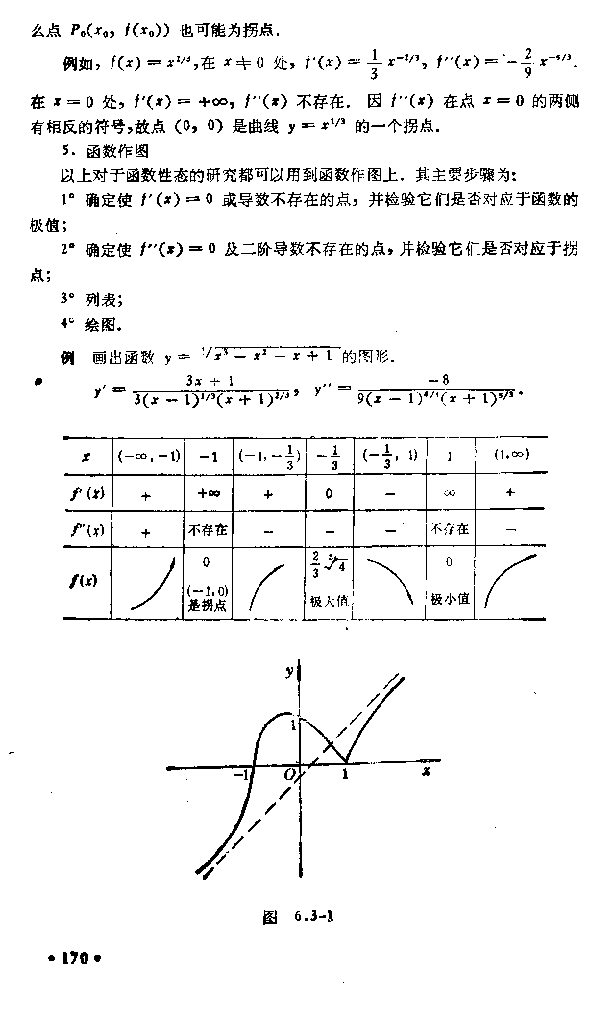 么点 P₀(x₀, f(x₀)) 也可能为拐点.
例如, f(x) = x^{1/3}, 在 x ≠ 0 处, f′(x) = \frac{1}{3} x^{-2/3}, f″(x) = -\frac{2}{9} x^{-5/3}.
在 x = 0 处, f′(x) = +∞, f″(x) 不存在. 因 f″(x) 在点 x = 0 的两侧
有相反的符号,故点 (0, 0) 是曲线 y = x^{1/3} 的一个拐点.
5. 函数作图
以上对于函数性态的研究都可以用到函数作图上. 其主要步骤为:
1° 确定使 f′(x) = 0 或导数不存在的点, 并检验它们是否对应于函数的
极值;
2° 确定使 f″(x) = 0 及二阶导数不存在的点, 并检验它们是否对应于拐
点;
3° 列表;
4° 绘图.
例 画出函数 y = \sqrt[3]{x³ - x² - x + 1} 的图形.
y′ = \frac{3x + 1}{3(x - 1)^{1/3}(x + 1)^{2/3}}, y″ = \frac{-8}{9(x - 1)^{4/3}(x + 1)^{5/3}}.
x (-∞, -1) -1 (-1, -\frac{1}{3}) -\frac{1}{3} (-\frac{1}{3}, 1) 1 (1, ∞)
f′(x) + +∞ + 0 - ∞ +
f″(x) + 不存在 - - - 不存在 -
f(x) 0 \frac{2}{3}\sqrt[3]{4} 0
(-1, 0) 极大值 极小值
是拐点
y
1
-1 O 1 x
图 6.3-1
• 170 •